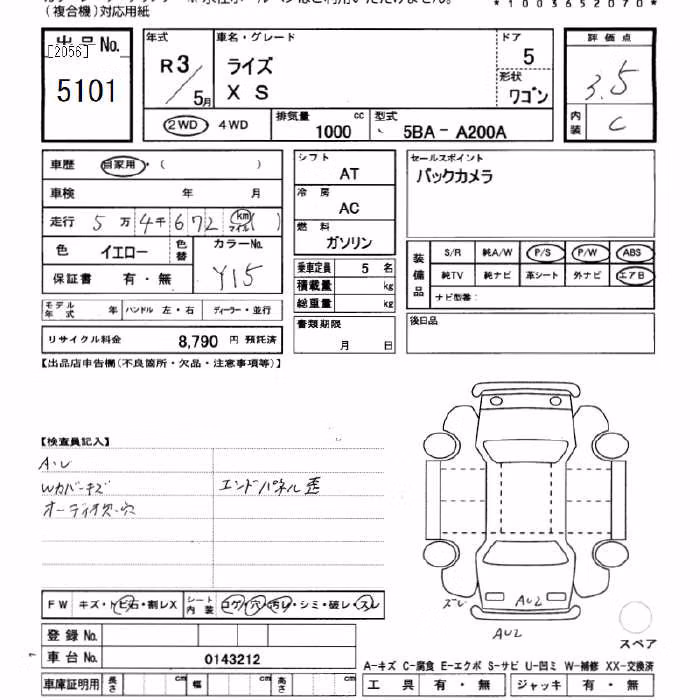 (複合機)対応用紙
*1003652070*
出品No.
[2056]
5101
年式
R3/5月
車名・グレード
ライズ
XS
ドア
5
形状
ワゴン
評価点
3.5
内装
C
2WD・4WD
排気量
1000 cc
型式
5BA-A200A
車歴 自家用・( )
車検 年 月
走行 5万4千672km(マイル)
色 イエロー
色替
カラーNo.
Y15
保証書 有・無
モデル年式 年
ハンドル 左・右
ディーラー・並行
リサイクル料金 8,790 円 預託済
シフト
AT
冷房
AC
燃料
ガソリン
乗車定員 5 名
積載量 kg
総重量 kg
書類期限
月 日
セールスポイント
バックカメラ
装備品
S/R 純A/W P/S P/W ABS
純TV 純ナビ 革シート 外ナビ エアB
ナビ型番:
後日品
【出品店申告欄(不良箇所・欠品・注意事項等)】
【検査員記入】
A・U
Wカバーキズ
エンドパネル歪
オーディオ欠・穴
FW キズ・トビ石・割レX
シート内装 コゲ・穴・汚レ・シミ・破レ・スレ
登録No.
車台No. 0143212
車庫証明用 長さ cm 幅 cm 高さ cm
スレ
AU2
AU2
スペア
A-キズ C-腐食 E-エクボ S-サビ U-凹ミ W-補修 XX-交換済
工具 有・無 ジャッキ 有・無